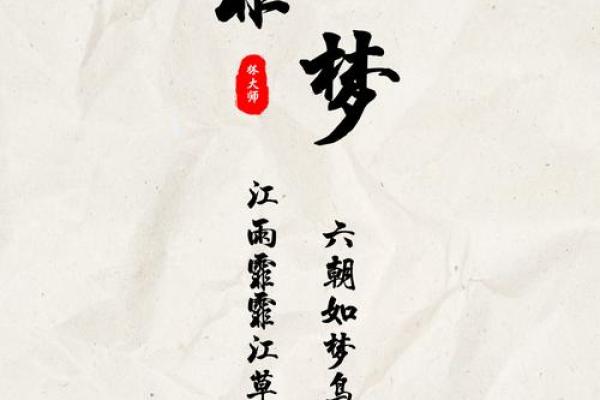 梦
大师
江雨霏霏江草
六朝如梦鸟